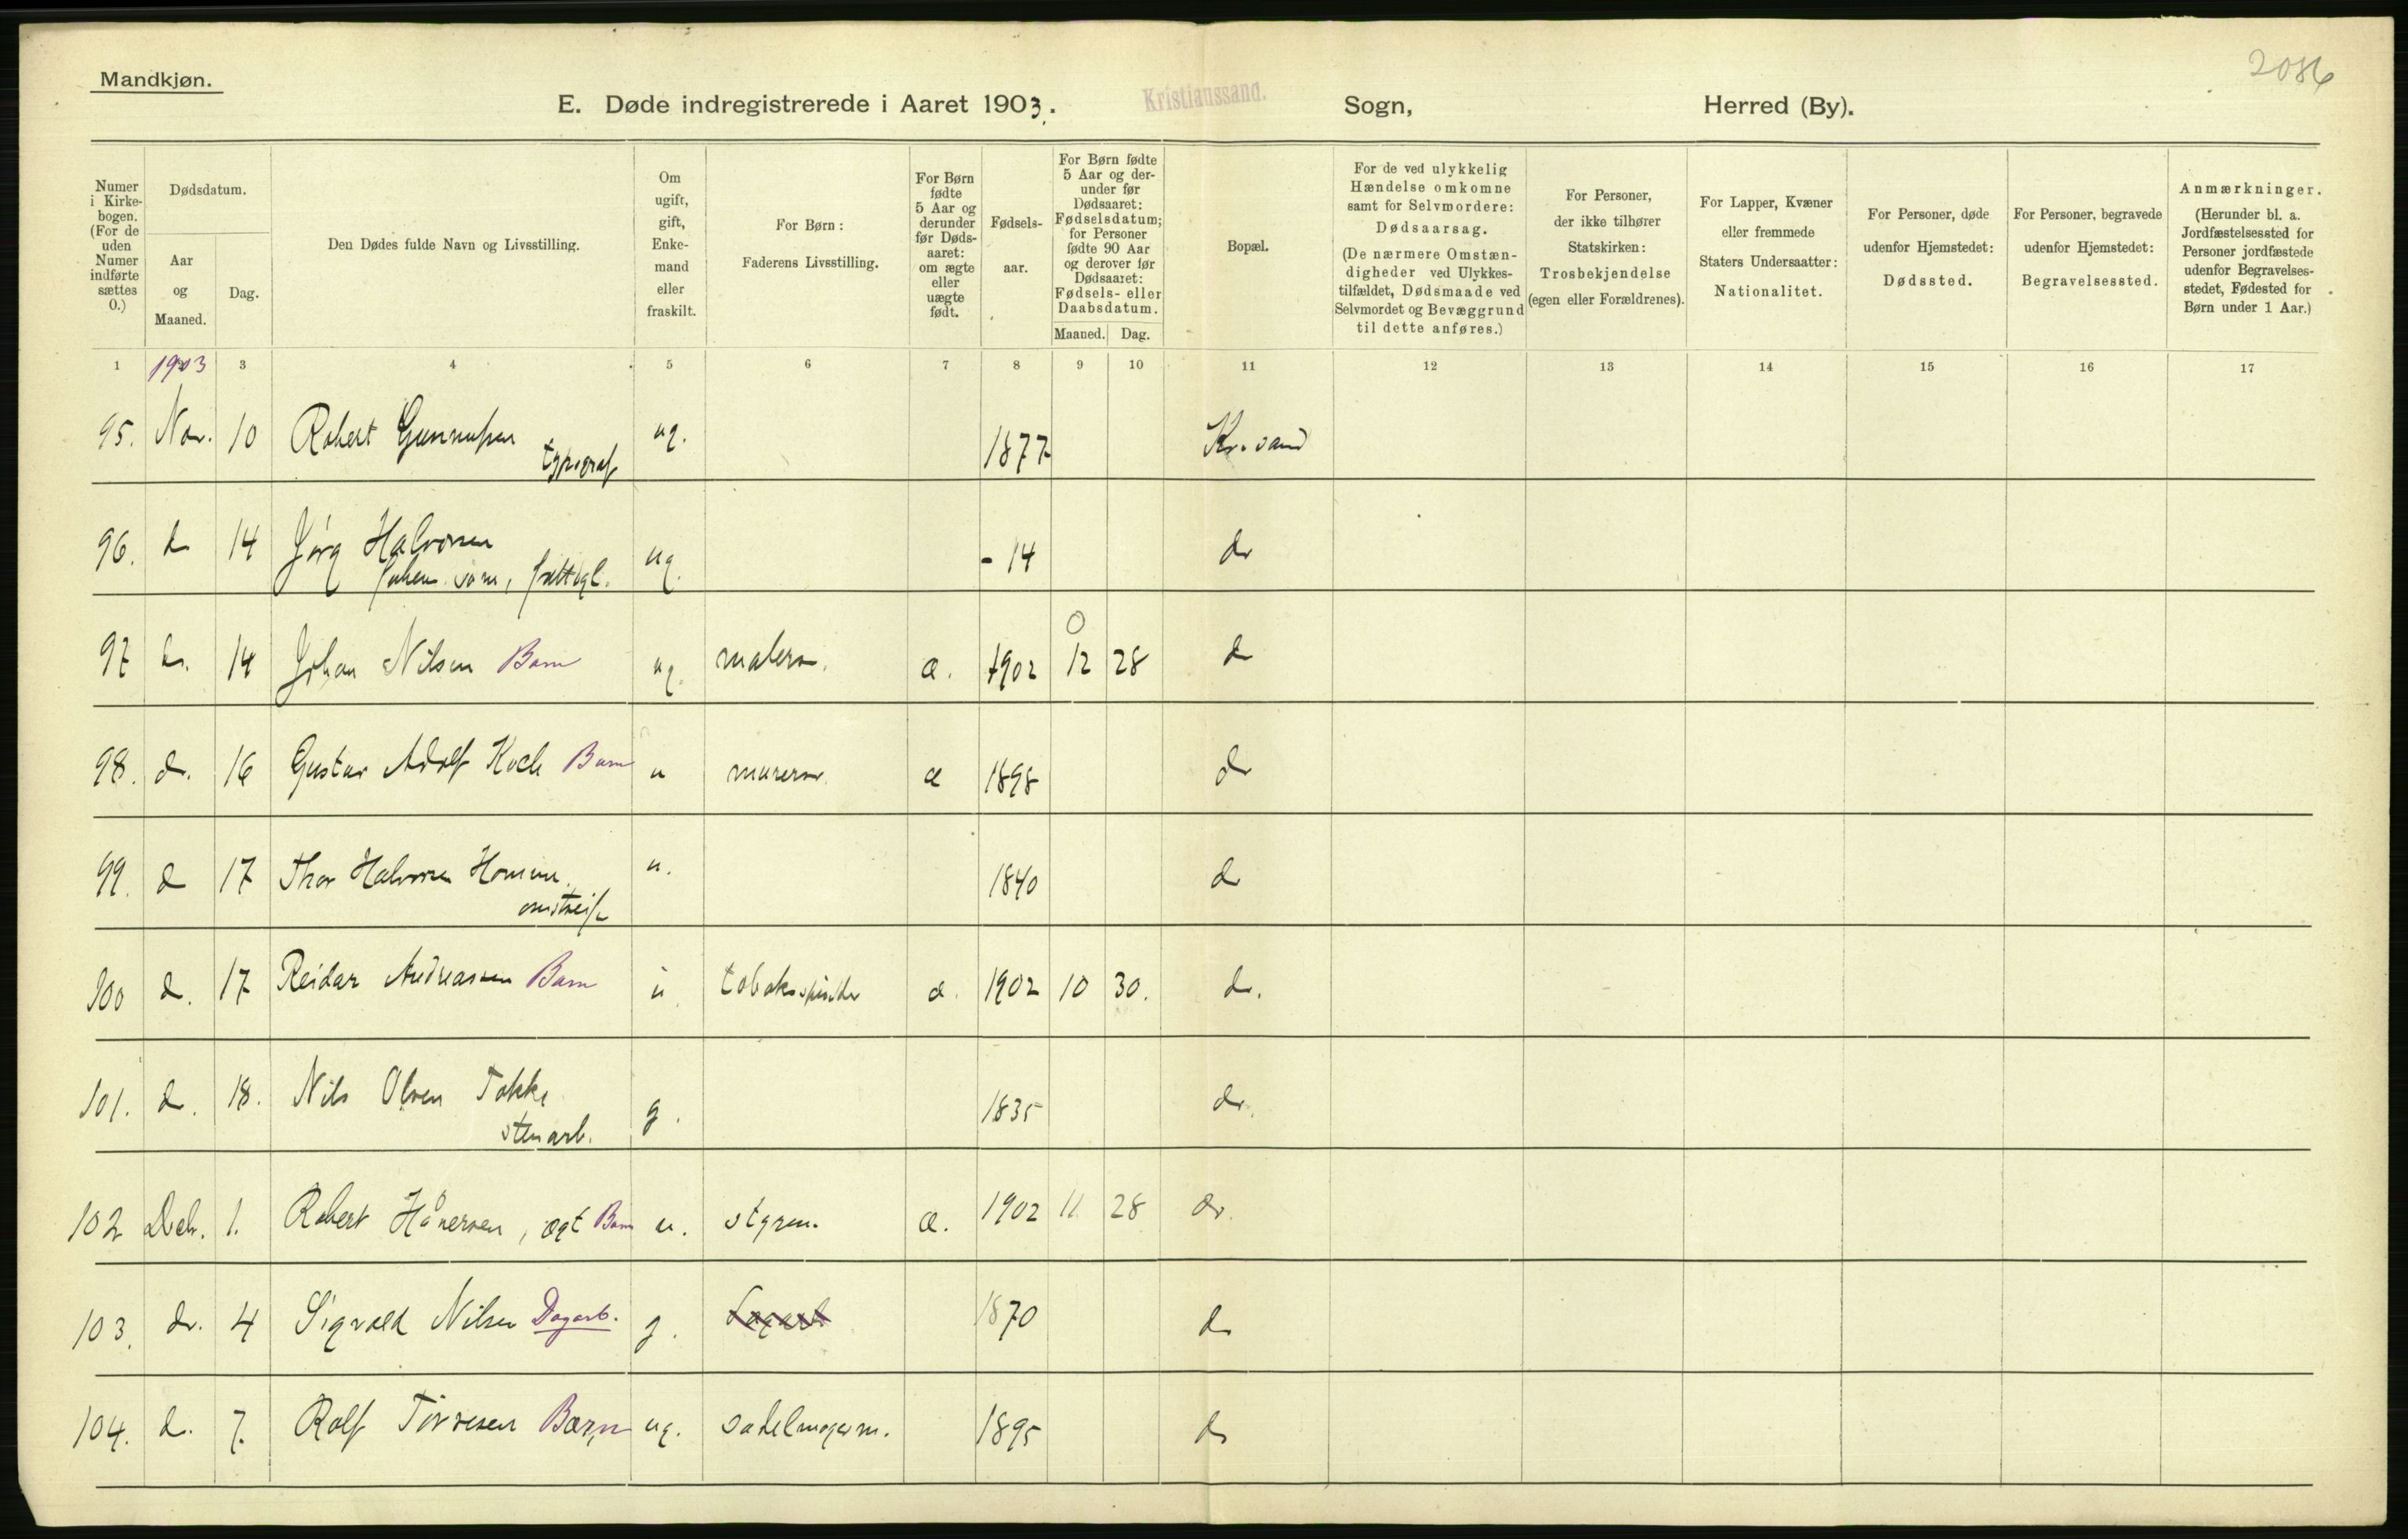 2086
Mandkjøn.
E. Døde indregistrerede i Aaret 1903. Kristianssand. Sogn, Herred (By).
Numer i Kirke-bogen. (For de uden Numer indførte sættes 0.)
Dødsdatum.
Aar og Maaned.
Dag.
Den Dødes fulde Navn og Livsstilling.
Om ugift, gift, Enke-mand eller fraskilt.
For Børn: Faderens Livsstilling.
For Børn fødte 5 Aar og derunder før Døds-aaret: om ægte eller uægte født.
Fødsels-aar.
For Børn fødte 5 Aar og der-under før Dødsaaret: Fødselsdatum; for Personer fødte 90 Aar og derover før Dødsaaret: Fødsels- eller Daabsdatum.
Maaned. Dag.
Bopæl.
For de ved ulykkelig Hændelse omkomne samt for Selvmordere: Dødsaarsag. (De nærmere Omstæn-digheder ved Ulykkes-tilfældet, Dødsmaade ved Selvmordet og Bevæggrund til dette anføres.)
For Personer, der ikke tilhører Statskirken: Trosbekjendelse (egen eller Forældrenes).
For Lapper, Kvæner eller fremmede Staters Undersaatter: Nationalitet.
For Personer, døde udenfor Hjemstedet: Dødssted.
For Personer, begravede udenfor Hjemstedet: Begravelsessted.
Anmærkninger. (Herunder bl. a. Jordfæstelsessted for Personer jordfæstede udenfor Begravelses-stedet, Fødested for Børn under 1 Aar.)
1 1903 3 4 5 6 7 8 9 10 11 12 13 14 15 16 17
95. Nov. 10 Robert Gunnufsen ug. 1877 Kr.sand
typograf
96. do 14 Jörg Halvorsen ug. - 14 do
fattigl.
97 do. 14 Johan Nilsen Barn ug. malersv. æ. 1902 0 12 28 do
98. do. 16 Gustav Adolf Koch Barn u murersv. æ 1898 do
99. do 17 Thor Halvorsen Homme u. 1840 do
omstreif.
100 do. 17 Reidar Andreassen Barn u. tobakspinder æ. 1902 10 30. do.
101. do. 18. Nils Olsen Takke g. 1835 do.
stenarb.
102 Deb. 1. Robert Håversen, ægt Barn u. styrm. æ. 1902 11. 28 do.
103. do. 4 Sigvald Nilsen Dagarb. g. Dagarb 1870 do
104. do. 7. Rolf Törresen Barn ug. sadelmagerm. 1895 do